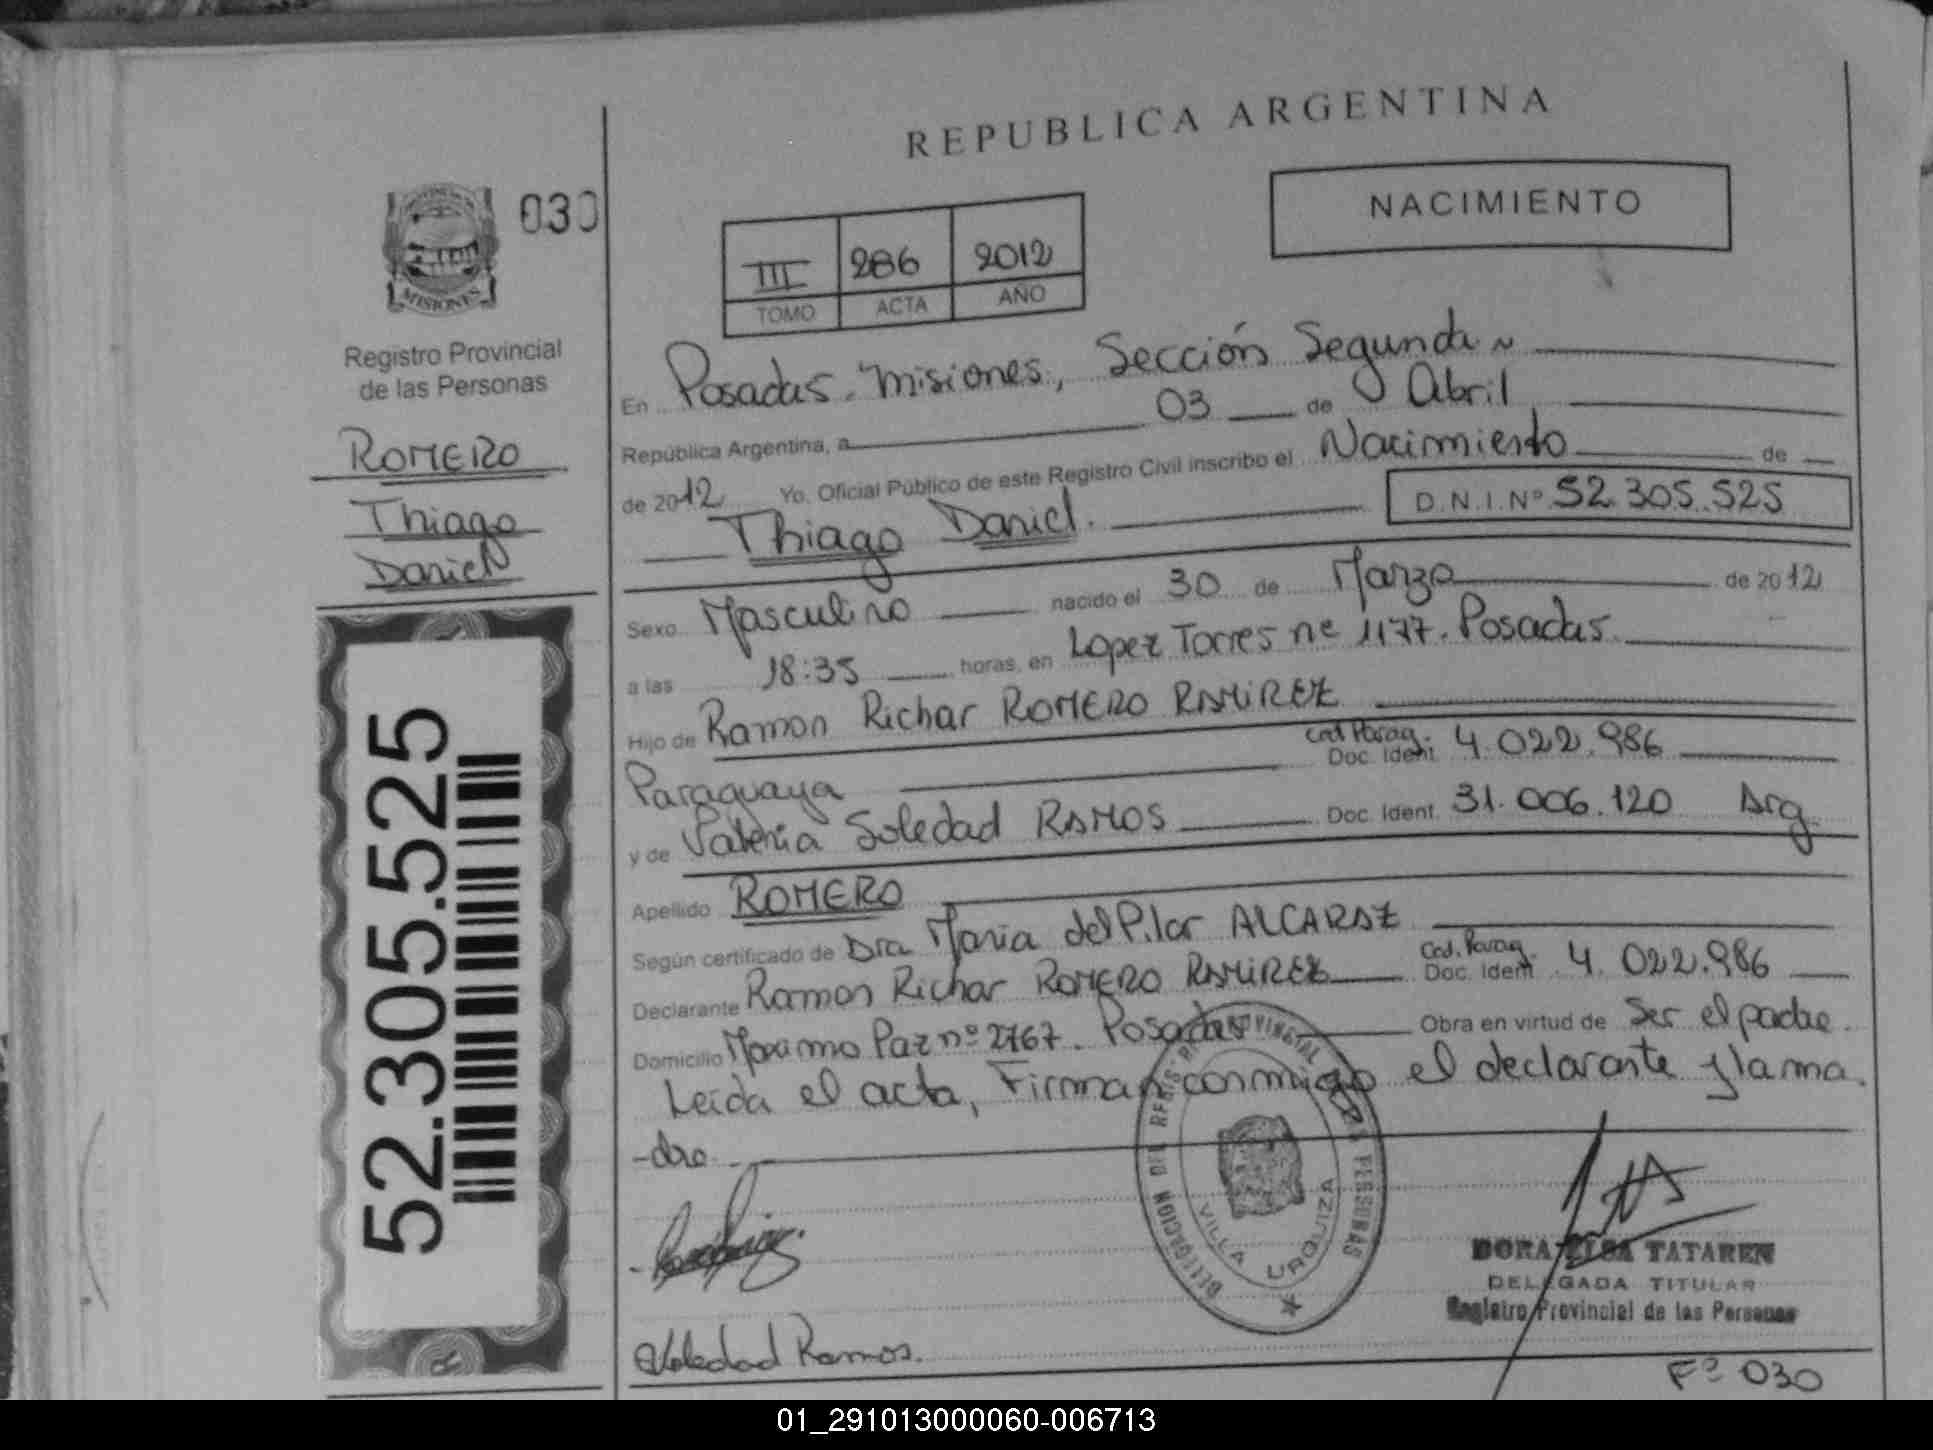 REPUBLICA ARGENTINA
NACIMIENTO
030
MISIONES
Registro Provincial
de las Personas
ROMERO
Thiago
Daniel
52.305.525
III 286 2012
TOMO ACTA AÑO
En Posadas. Misiones, Sección Segunda
República Argentina, a 03 de Abril
de 2012 Yo, Oficial Público de este Registro Civil inscribo el Nacimiento de
Thiago Daniel. D.N.I. Nº 52.305.525
Sexo Masculino nacido el 30 de Marzo de 2012
a las 18:35 horas, en Lopez Torres nº 1177. Posadas
Hijo de Ramon Richar ROMERO RAMIREZ
Ced. Parag.
Paraguaya Doc. Ident. 4.022.986
y de Valeria Soledad RAMOS Doc. Ident. 31.006.120 Arg.
Apellido ROMERO
Según certificado de Dra Maria del Pilar ALCARAZ
Ced. Parag.
Declarante Ramon Richar ROMERO RAMIREZ Doc. Ident. 4.022.986
Domicilio Maximo Paz nº 2767. Posadas Obra en virtud de Ser el padre.
Leida el acta, Firman conmigo el declarante y la ma.
-dre.
DELEGACION DEL REGISTRO PROVINCIAL DE LAS PERSONAS
VILLA URQUIZA
DORA ELSA TATAREN
DELEGADA TITULAR
Registro Provincial de las Personas
Soledad Ramos.
Fº 030
01_291013000060-006713